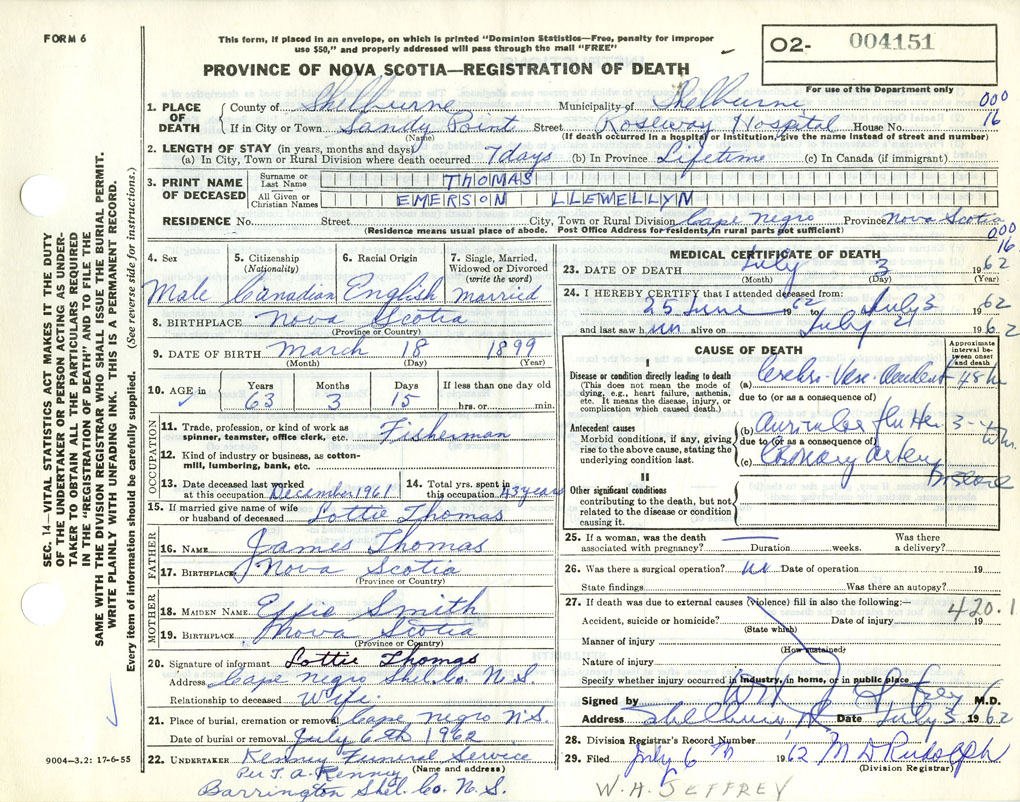 FORM 6
This form, if placed in an envelope, on which is printed "Dominion Statistics—Free, penalty for improper
use $50," and properly addressed will pass through the mail "FREE"
O2- 004151
For use of the Department only
PROVINCE OF NOVA SCOTIA—REGISTRATION OF DEATH
1. PLACE OF DEATH County of Shelburne Municipality of Shelburne 000
If in City or Town Sandy Point Street Roseway Hospital House No. 16
(Name) (If death occurred in a hospital or institution, give the name instead of street and number)
2. LENGTH OF STAY (in years, months and days)
(a) In City, Town or Rural Division where death occurred 7 days (b) In Province Lifetime (c) In Canada (if immigrant)
3. PRINT NAME OF DECEASED Surname or Last Name THOMAS
All Given or Christian Names EMERSON LLEWELLYN
RESIDENCE No. Street City, Town or Rural Division Cape Negro Province Nova Scotia
(Residence means usual place of abode. Post Office Address for residents in rural parts not sufficient) 000
16
4. Sex Male
5. Citizenship (Nationality) Canadian
6. Racial Origin English
7. Single, Married, Widowed or Divorced (write the word) Married
8. BIRTHPLACE Nova Scotia
(Province or Country)
9. DATE OF BIRTH March 18 1899
(Month) (Day) (Year)
10. AGE in Years Months Days If less than one day old
63 3 15 hrs. or min.
OCCUPATION
11. Trade, profession, or kind of work as spinner, teamster, office clerk, etc. Fisherman
12. Kind of industry or business, as cotton-mill, lumbering, bank, etc.
13. Date deceased last worked at this occupation December 1961
14. Total yrs. spent in this occupation 43 years
15. If married give name of wife or husband of deceased Lottie Thomas
FATHER
16. NAME James Thomas
17. BIRTHPLACE Nova Scotia
(Province or Country)
MOTHER
18. MAIDEN NAME Effie Smith
19. BIRTHPLACE Nova Scotia
(Province or Country)
20. Signature of informant Lottie Thomas
Address Cape Negro Shel. Co. N.S.
Relationship to deceased Wife
21. Place of burial, cremation or removal Cape Negro N.S.
Date of burial or removal July 6th 1962
22. UNDERTAKER Kenney Funeral Service
(Name and address)
Per J. A. Kenney
Barrington Shel. Co. N.S.
MEDICAL CERTIFICATE OF DEATH
23. DATE OF DEATH July 3 1962
(Month) (Day) (Year)
24. I HEREBY CERTIFY that I attended deceased from:
25 June 1962 to July 3 1962
and last saw him alive on July 2 1962
CAUSE OF DEATH
Approximate interval between onset and death
I
Disease or condition directly leading to death
(This does not mean the mode of dying, e.g., heart failure, asthenia, etc. It means the disease, injury, or complication which caused death.)
(a) Cerebro-Vasc. Accident 48 h
due to (or as a consequence of)
Antecedent causes
Morbid conditions, if any, giving rise to the above cause, stating the underlying condition last.
(b) Auricular flutter 3-4
due to (or as a consequence of)
(c) Coronary artery Disease
II
Other significant conditions
contributing to the death, but not related to the disease or condition causing it.
25. If a woman, was the death associated with pregnancy? Duration weeks. Was there a delivery?
26. Was there a surgical operation? no Date of operation 19
State findings Was there an autopsy?
27. If death was due to external causes (violence) fill in also the following:— 420.1
Accident, suicide or homicide? Date of injury 19
(State which)
Manner of injury
(How sustained)
Nature of injury
Specify whether injury occurred in industry, in home, or in public place
Signed by W H Jeffrey M.D.
Address Shelburne Date July 5 1962
28. Division Registrar's Record Number
29. Filed July 6th 1962 M D Rudolph
(Division Registrar)
W. H. JEFFREY
SEC. 14—VITAL STATISTICS ACT MAKES IT THE DUTY
OF THE UNDERTAKER OR PERSON ACTING AS UNDER-
TAKER TO OBTAIN ALL THE PARTICULARS REQUIRED
IN THE "REGISTRATION OF DEATH" AND TO FILE THE
SAME WITH THE DIVISION REGISTRAR WHO SHALL ISSUE THE BURIAL PERMIT.
WRITE PLAINLY WITH UNFADING INK. THIS IS A PERMANENT RECORD.
Every item of information should be carefully supplied. (See reverse side for instructions.)
9004—3.2: 17-6-55